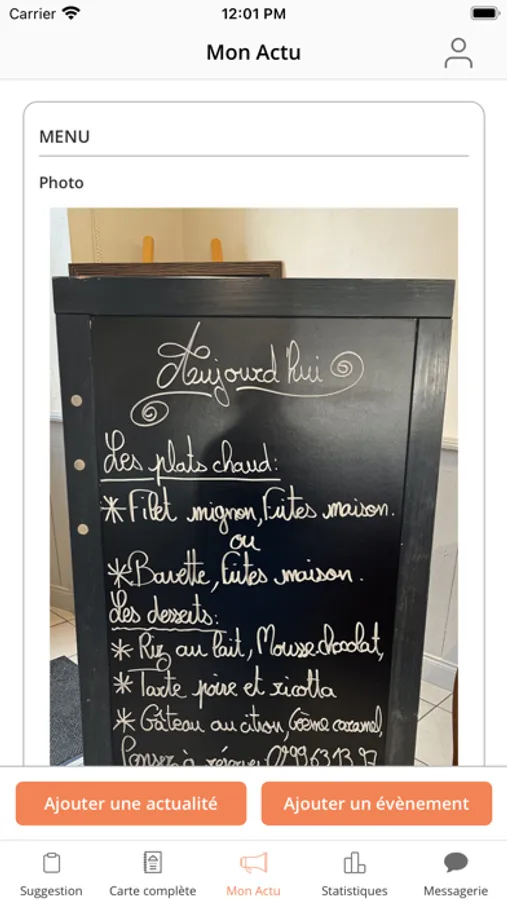 Carrier 12:01 PM
Mon Actu
MENU
Photo
Aujourd'hui
Les plats chaud:
* Filet mignon, Frites maison.
ou
* Bavette, Frites maison.
Les desserts:
* Riz au lait, Mousse chocolat,
* Tarte poire et ricotta
* Gâteau au citron, Crème caramel,
Pensez à réserver
Ajouter une actualité Ajouter un évènement
Suggestion Carte complète Mon Actu Statistiques Messagerie